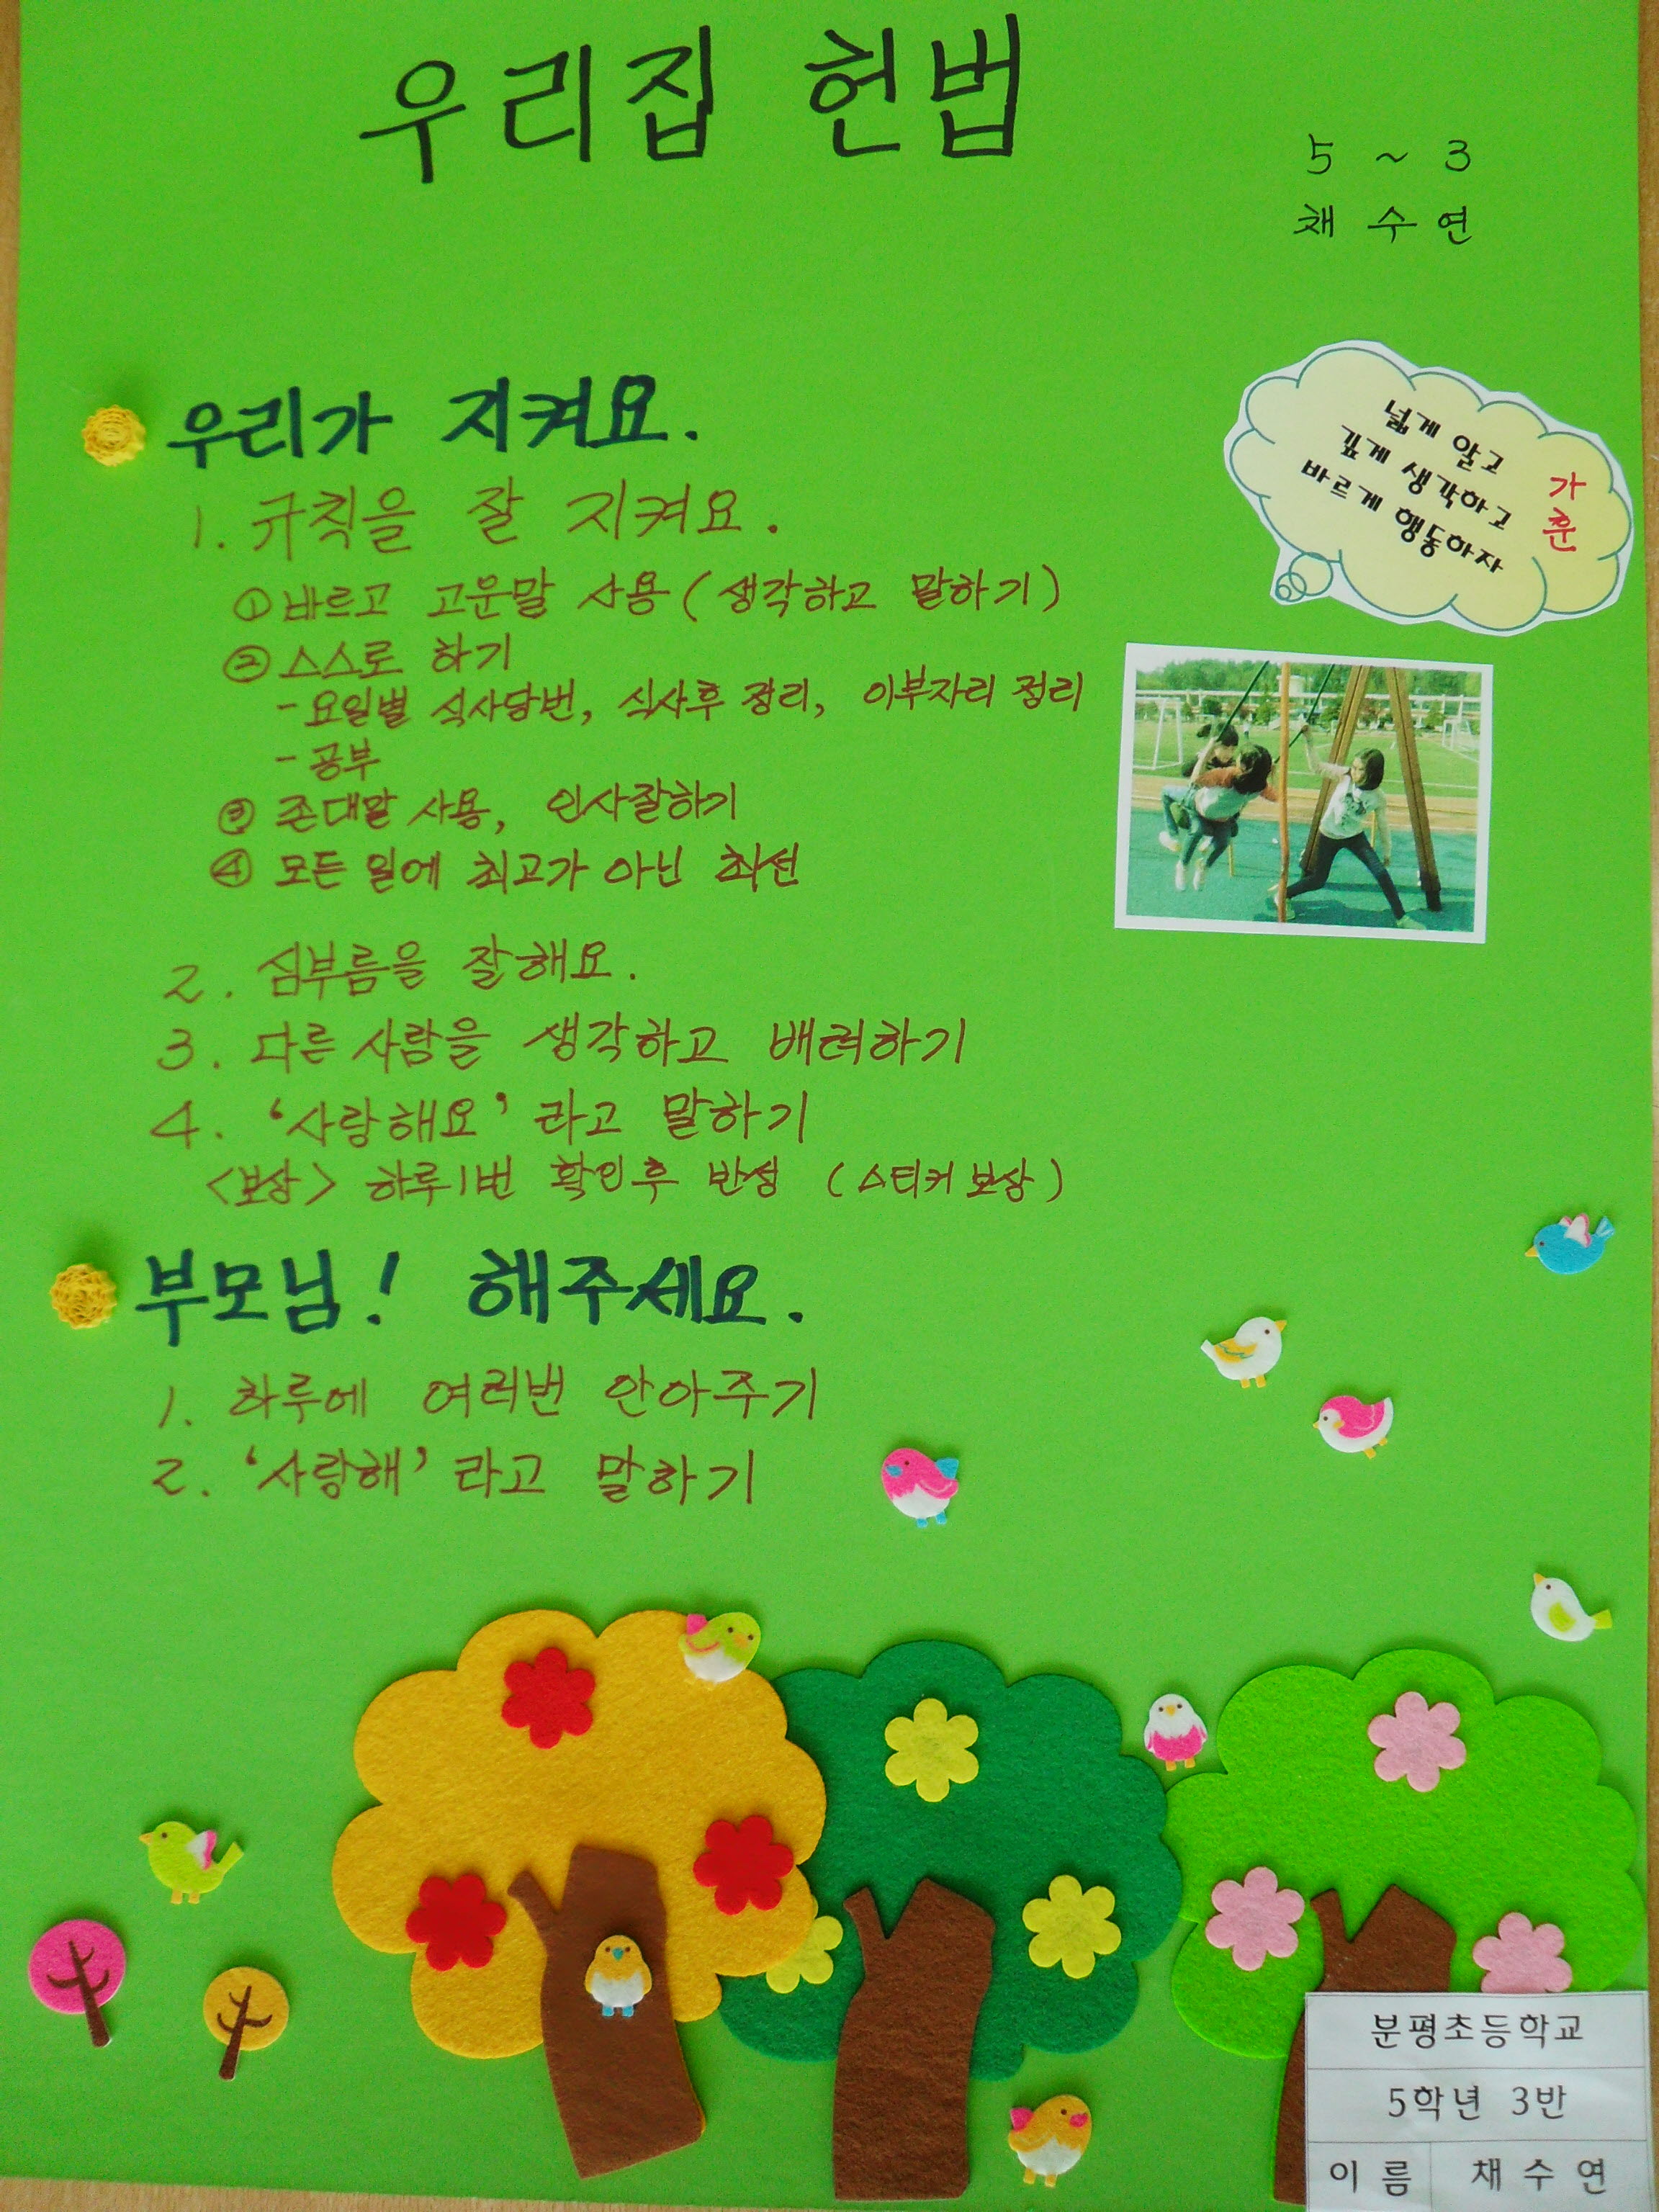 우리집 헌법
5 ~ 3
채 수 연
우리가 지켜요.
1. 규칙을 잘 지켜요.
①바르고 고운말 사용 (생각하고 말하기)
②스스로 하기
-요일별 식사당번, 식사후 정리, 이부자리 정리
-공부
③ 존대말 사용, 인사잘하기
④ 모든 일에 최고가 아닌 최선
2. 심부름을 잘해요.
3. 다른 사람을 생각하고 배려하기
4. '사랑해요' 라고 말하기
<보상> 하루1번 확인후 반성 (스티커 보상)
가훈
넓게 알고
깊게 생각하고
바르게 행동하자
부모님! 해주세요.
1. 하루에 여러번 안아주기
2. '사랑해' 라고 말하기
분평초등학교
5학년 3반
이 름 채 수 연